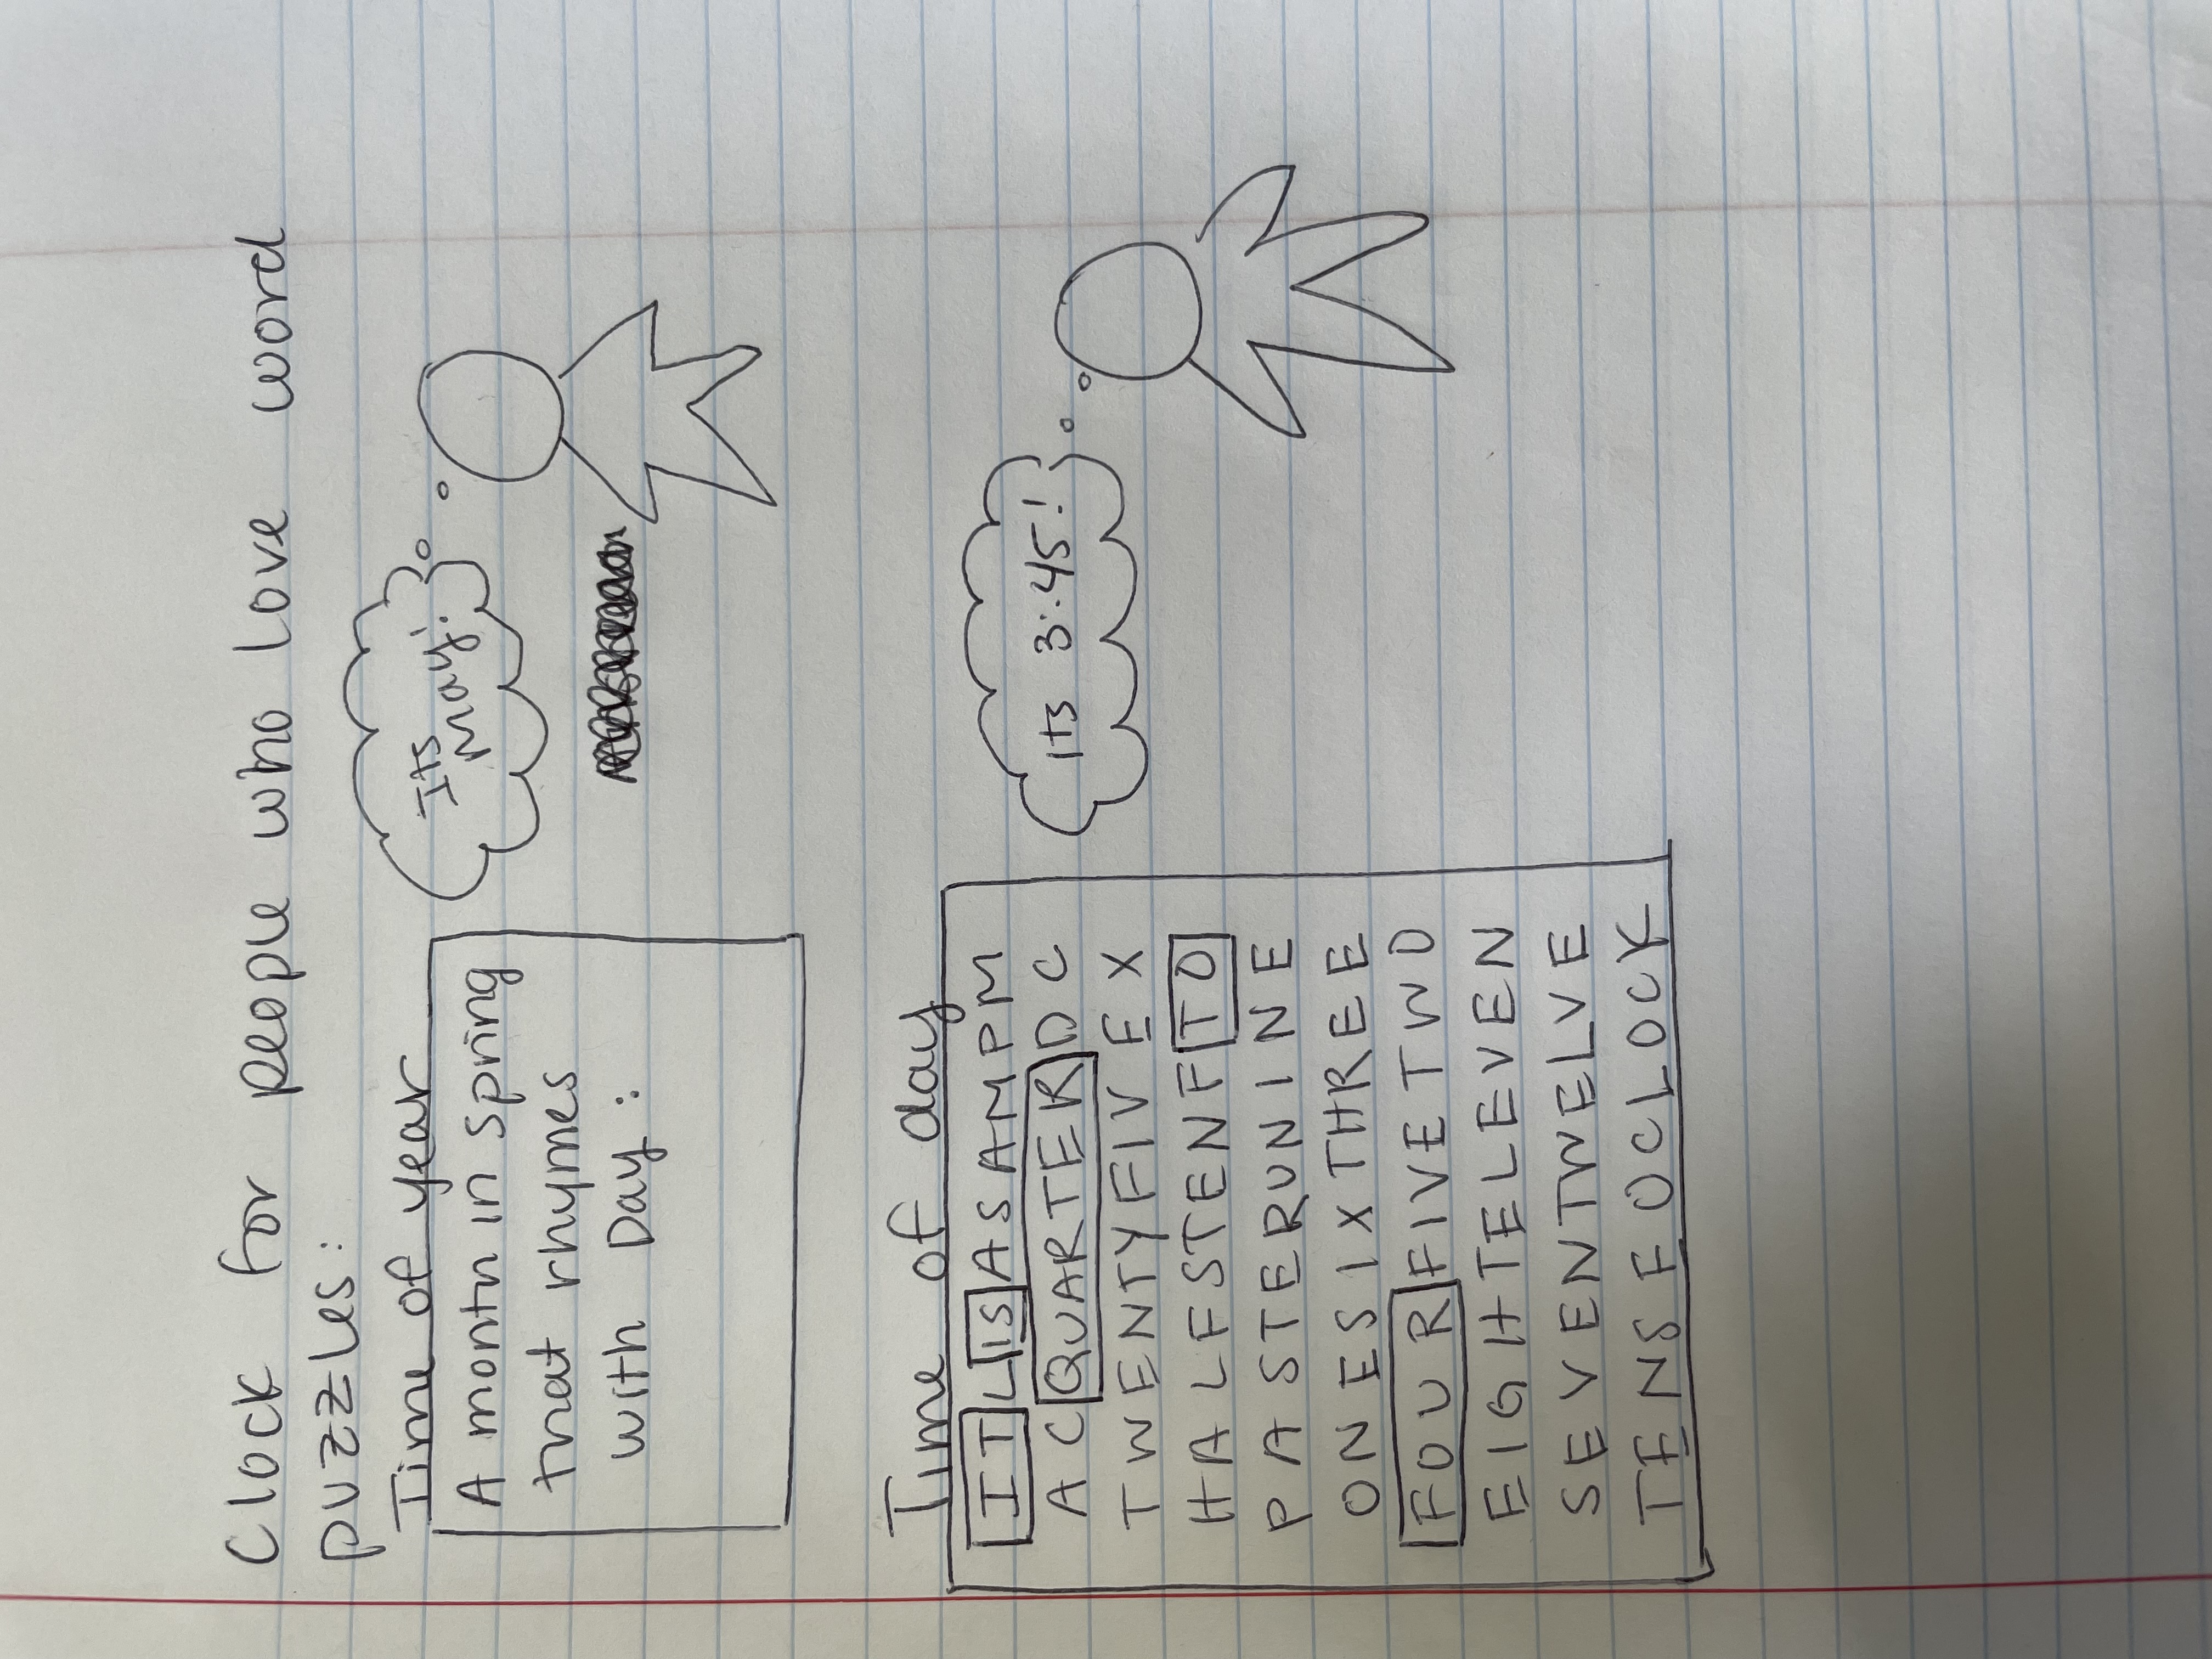 Clock for people who love word
puzzles:
Time of year
A month in spring
that rhymes
with Day:
Its
May!
Time of day
ITLISASAMPM
ACQUARTERDC
TWENTYFIVEX
HALFSTENFTO
PASTERUNINE
ONESIXTHREE
FOURFIVETWO
EIGHTELEVEN
SEVENTWELVE
TENSEOCLOCK
its 3:45!